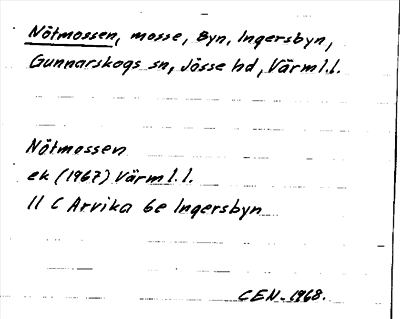 Nötmossen, mosse, Byn, Ingersbyn,
Gunnarskogs sn, Jösse hd, Värml.l.
Nötmossen
ek (1967) Värml.l.
11 C Arvika 6e Ingersbyn
CEN-1968.